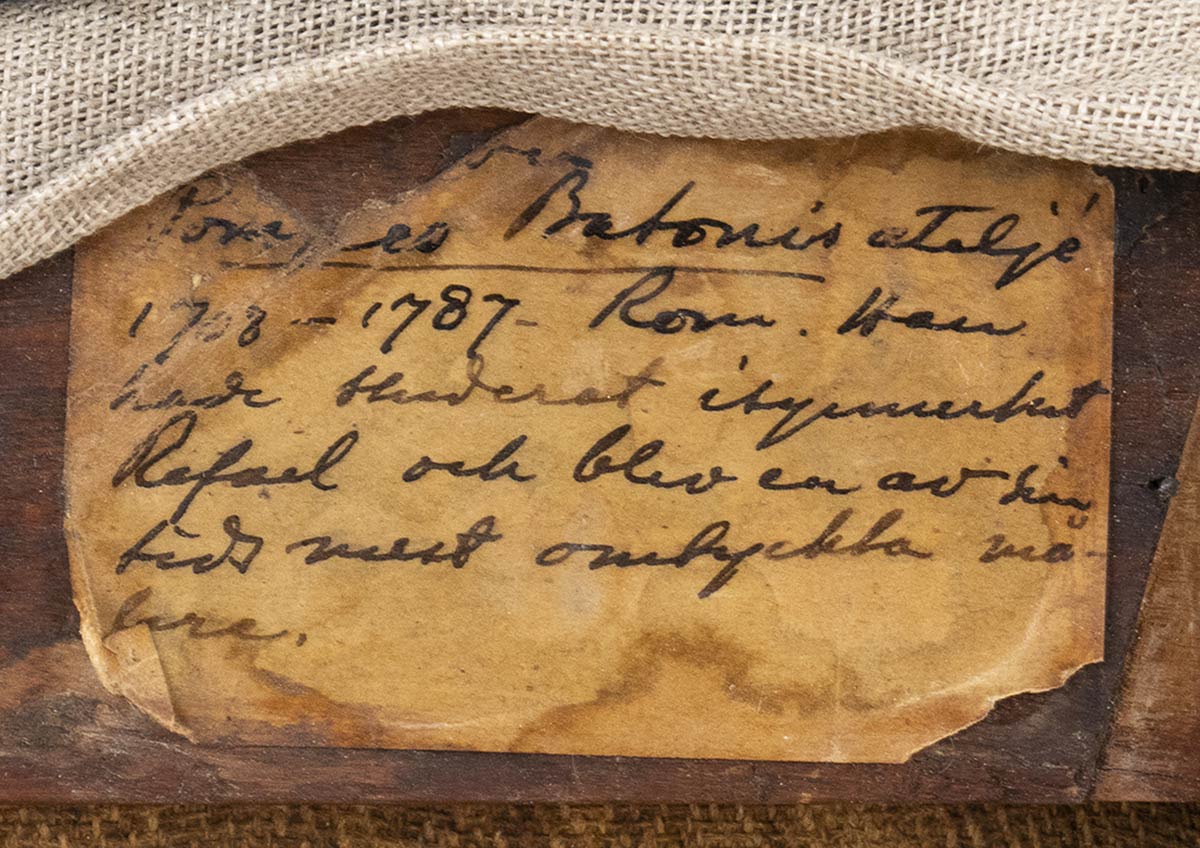 Pompeo Batonis ateljé
1708 – 1787 – Rom. Han
hade studerat isynnerhet
Rafael och blev en av sin
tids mest omtyckta må-
lare.